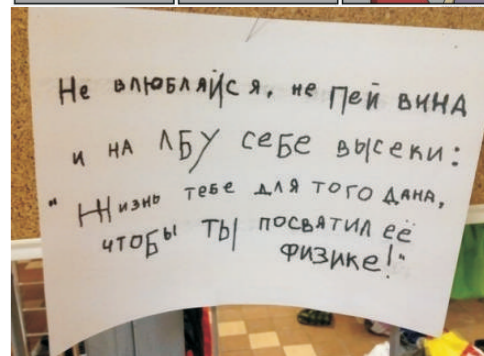 Не влюбляйся, не пей вина
и на лбу себе высеки:
"Жизнь тебе для того дана,
чтобы ты посвятил её
физике!"